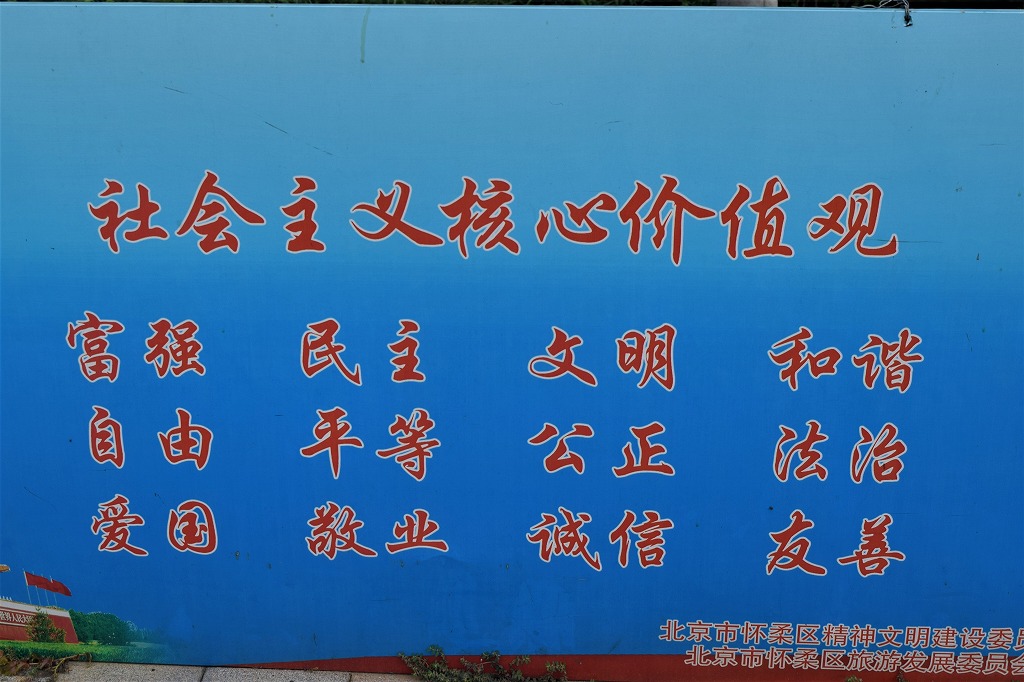 社会主义核心价值观
富强 民主 文明 和谐
自由 平等 公正 法治
爱国 敬业 诚信 友善
世界人民大
北京市怀柔区精神文明建设委员
北京市怀柔区旅游发展委员会